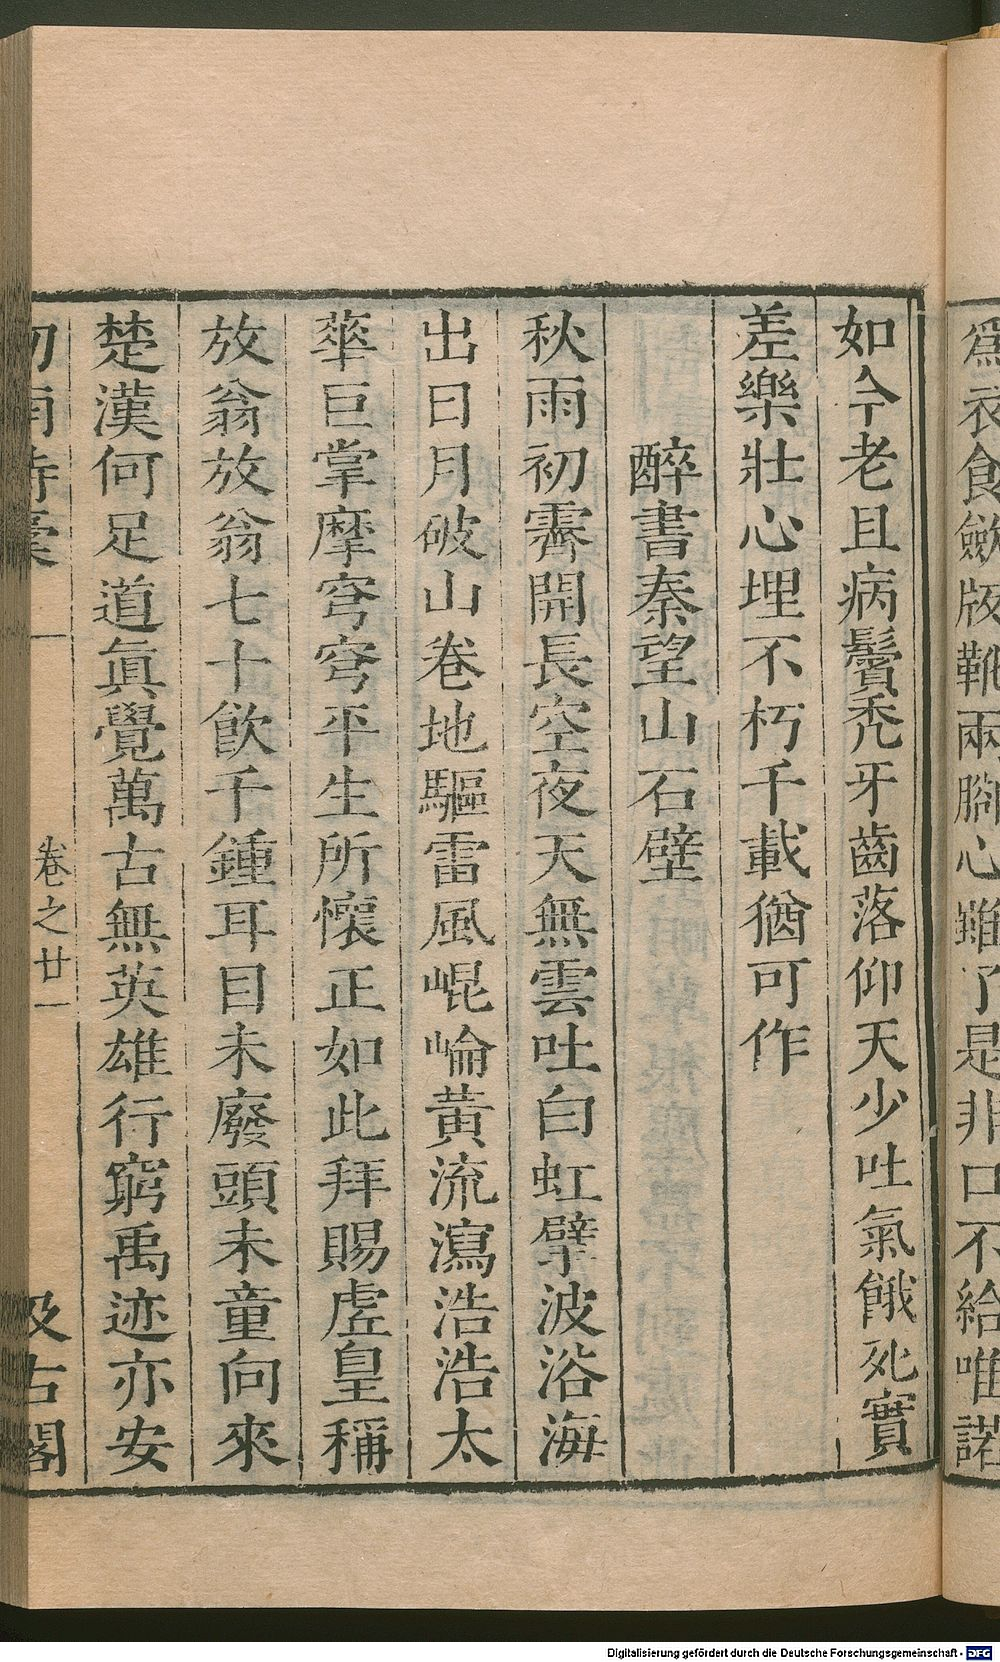 爲衣食斂版靴兩脚心雖了是非口不給唯諾
如今老且病鬢禿牙齒落仰天少吐氣餓死實
差樂壯心埋不朽千載猶可作
醉書秦望山石壁
秋雨初霽開長空夜天無雲吐白虹擘波浴海
出日月破山卷地驅雷風崐崘黃流瀉浩浩太
華巨掌摩穹穹平生所懷正如此拜賜虛皇稱
放翁放翁七十飲千鍾耳目未廢頭未童向來
楚漢何足道眞覺萬古無英雄行窮禹迹亦安
劎南詩稾
卷之廿一
汲古閣
Digitalisierung gefördert durch die Deutsche Forschungsgemeinschaft - DFG